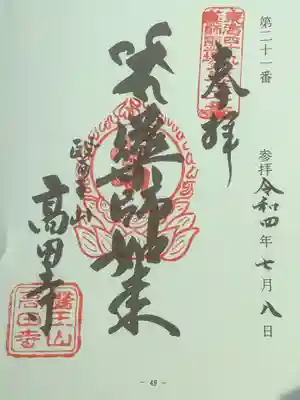 第二十一番
参拝 令和四年七月八日
奉拝
薬師如来
醫王山
高田寺
醫王山
高田寺
- 49 -